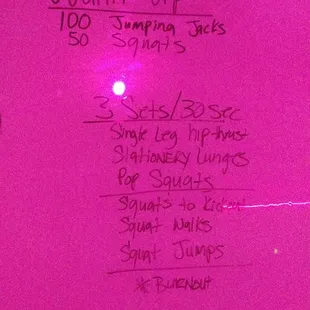 100 Jumping Jacks
50 Squats
3 Sets/30 sec
Single Leg hip-thrust
Stationery Lunges
Pop Squats
Squats to Kickout
Squat Walks
Squat Jumps
Burnout